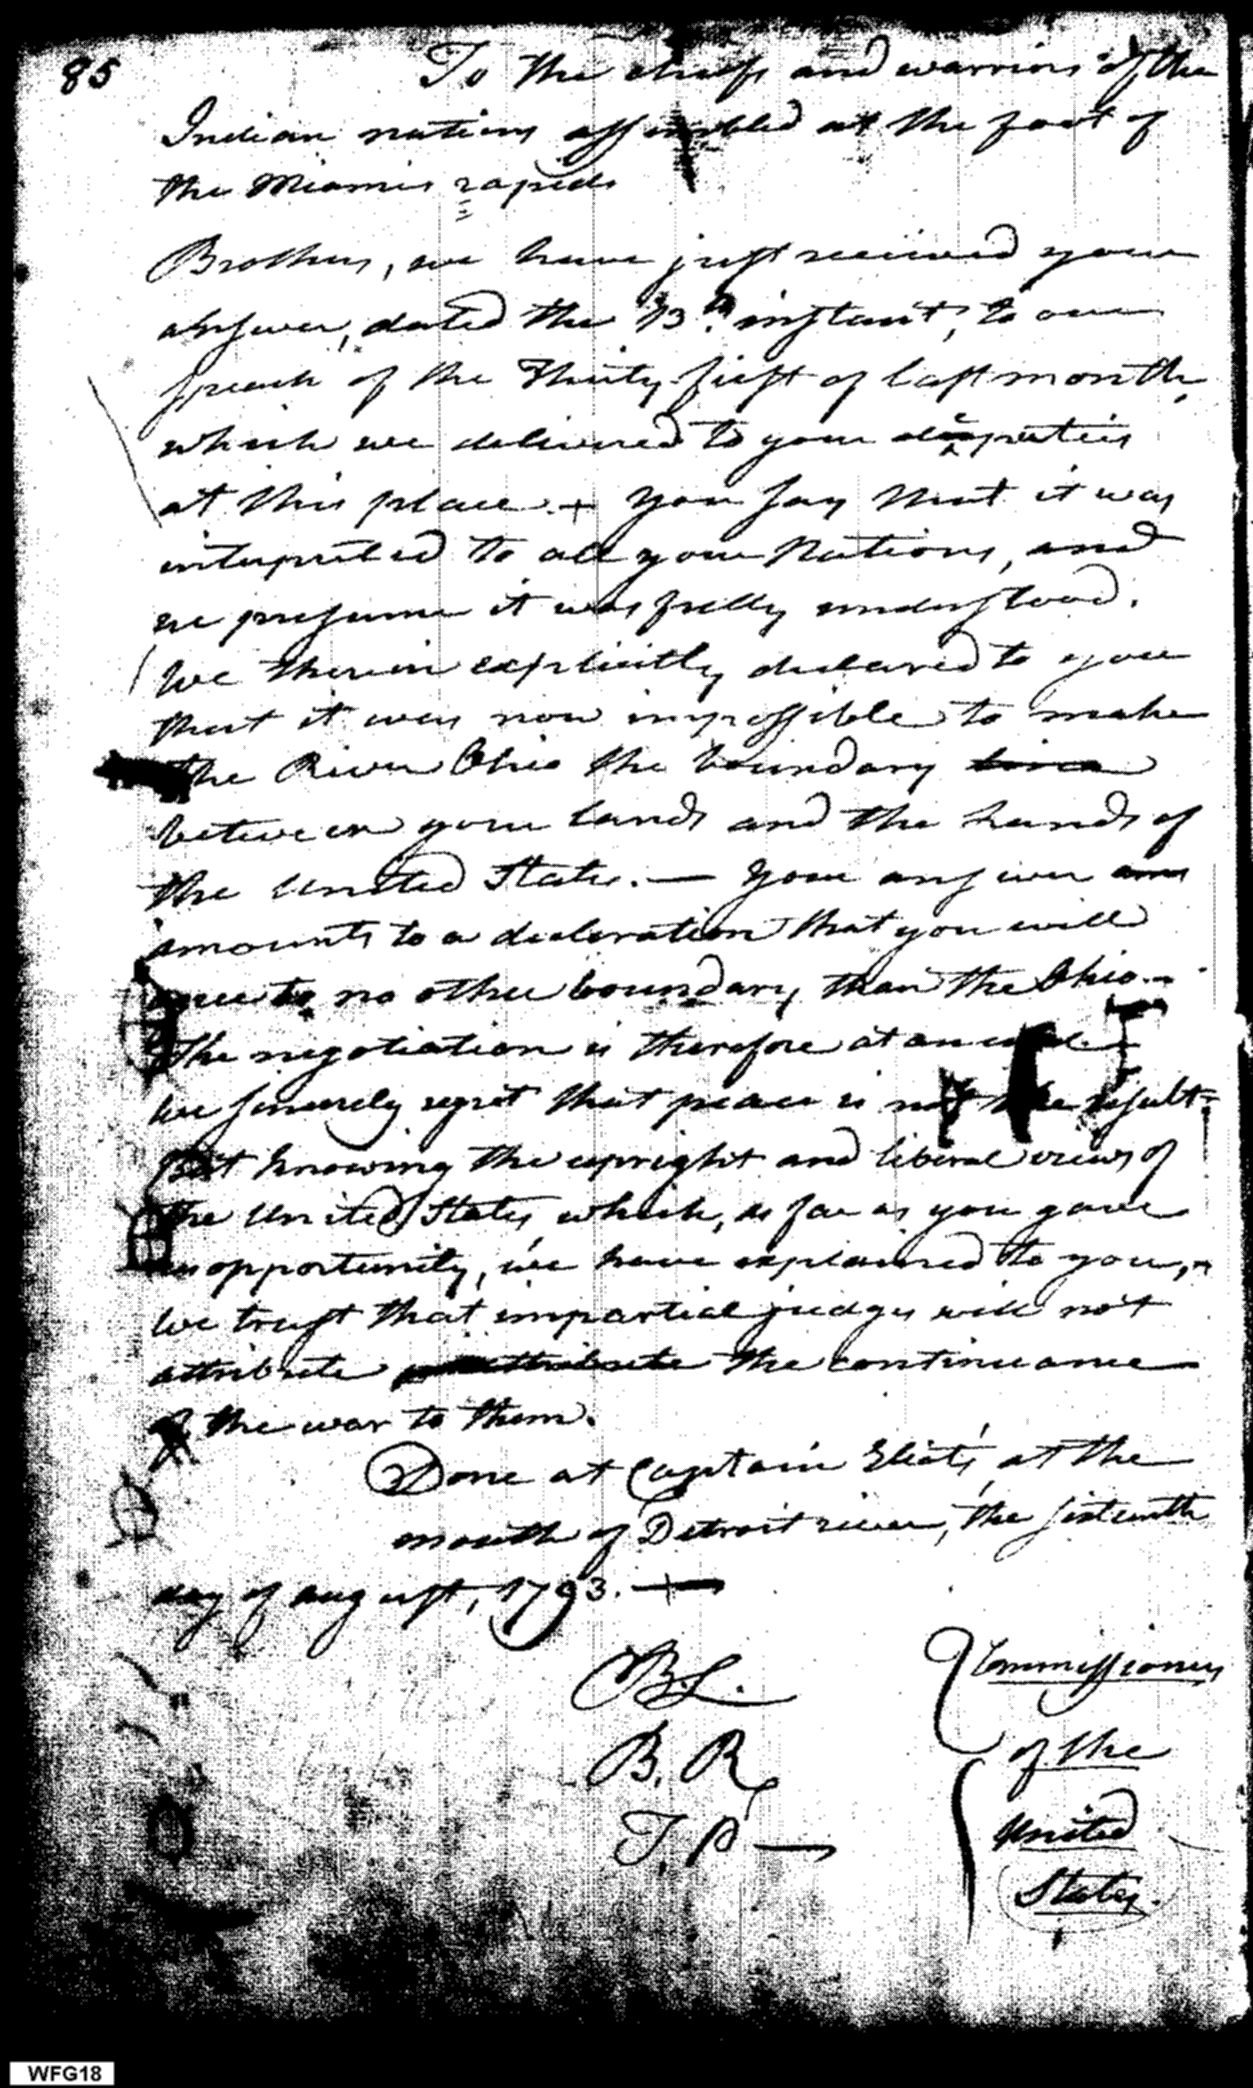 85
To the chiefs and warriors of the
Indian nations assembled at the foot of
the Miamis rapids
Brothers, we have just received your
answer, dated the 13th. instant, to our
speech of the Thirty first of last month,
which we delivered to your deputies
at this place. + You say that it was
interpreted to all your Nations, and
we presume it was fully understood.
We therein explicitly declared to you
that it was now impossible to make
the River Ohio the boundary line
between your lands and the lands of
the United States. — Your answer am
amounts to a declaration that you will
agree to no other boundary than the Ohio. -
The negotiation is therefore at an end. -
We sincerely regret that peace is not the result -
But knowing the upright and liberal views of
the United States, which, as far as you gave
us opportunity, we have explained to you, -
We trust that impartial judges will not
attribute attribute the continuance
of the war to them.
Done at Captain Eliot's, at the
mouth of Detroit river, the sixteenth
day of August, 1793. —
B. L.
B. R.
T. P —
Commissioners
of the
United
States.
WFG18